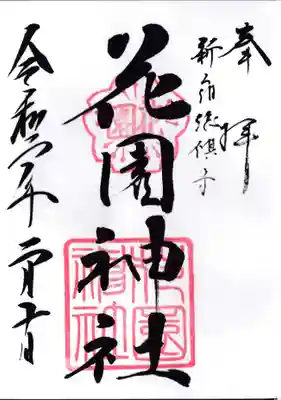 奉拝
新宿総鎮守
花園神社
令和六年二月十日
花園神社